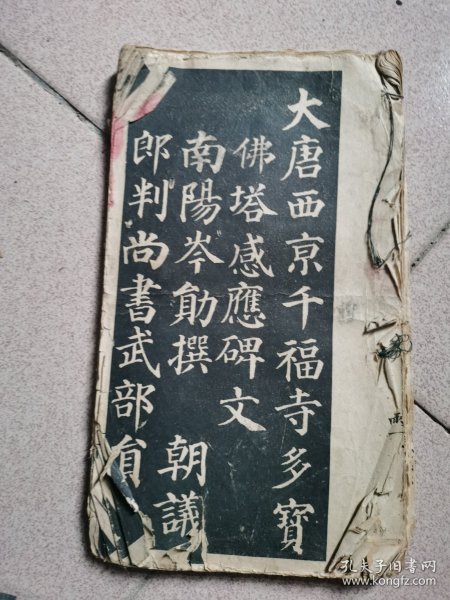 大唐西京千福寺多寶
佛塔感應碑文
南陽岑勛撰 朝議
郎判尚書武部員
孔夫子旧书网
www.kongfz.com